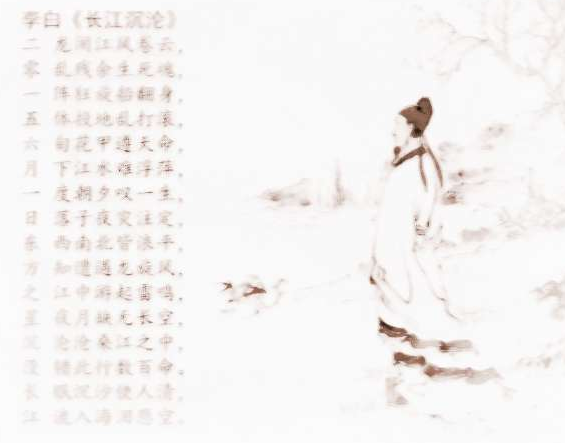 李白《长江沉沦》
二 龙闹江风卷云,
零 乱残余生死魂,
一 阵狂旋船翻身,
五 体投地乱打滚,
六 旬花甲遇天命,
月 下江水难浮萍,
一 度朝夕叹一生,
日 落子夜灾注定,
东 西南北皆浪平,
方 知遭遇龙旋风,
之 江中游起雷鸣,
星 夜月缺无长空,
沉 沦沧桑江之中,
没 此行数百命,
长 眠沉沙使人清,
江 入海 空。